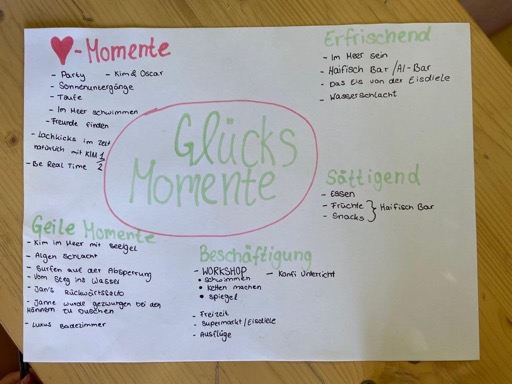 ♥-Momente
- Party
- Kim & Oscar
- Sonnenuntergänge
- Taufe
- Im Meer schwimmen
- Freunde finden
- Lachkicks im Zelt
natürlich mit KIM 1
- Be Real Time 2
Glücks
Momente
Erfrischend
- Im Meer sein
- Haifisch Bar /Al-Bar
- Das Eis von der Eisdiele
- Wasserschlacht
Sättigend
- Essen
- Früchte
- Snacks
Haifisch Bar
Geile Momente
- Kim im Meer mit Seeigel
- Algen Schlacht
- Surfen auf der Absperrung
- Vom Steg ins Wasser
- Jan's Rückwärtssalto
- Janne wurde gezwungen bei den
Männern zu Duschen
- Luxus Badezimmer
Beschäftigung
- WORKSHOP
• Schwimmen
• Ketten machen
• Spiegel
- Konfi Unterricht
- Freizeit
- Supermarkt/Eisdiele
- Ausflüge